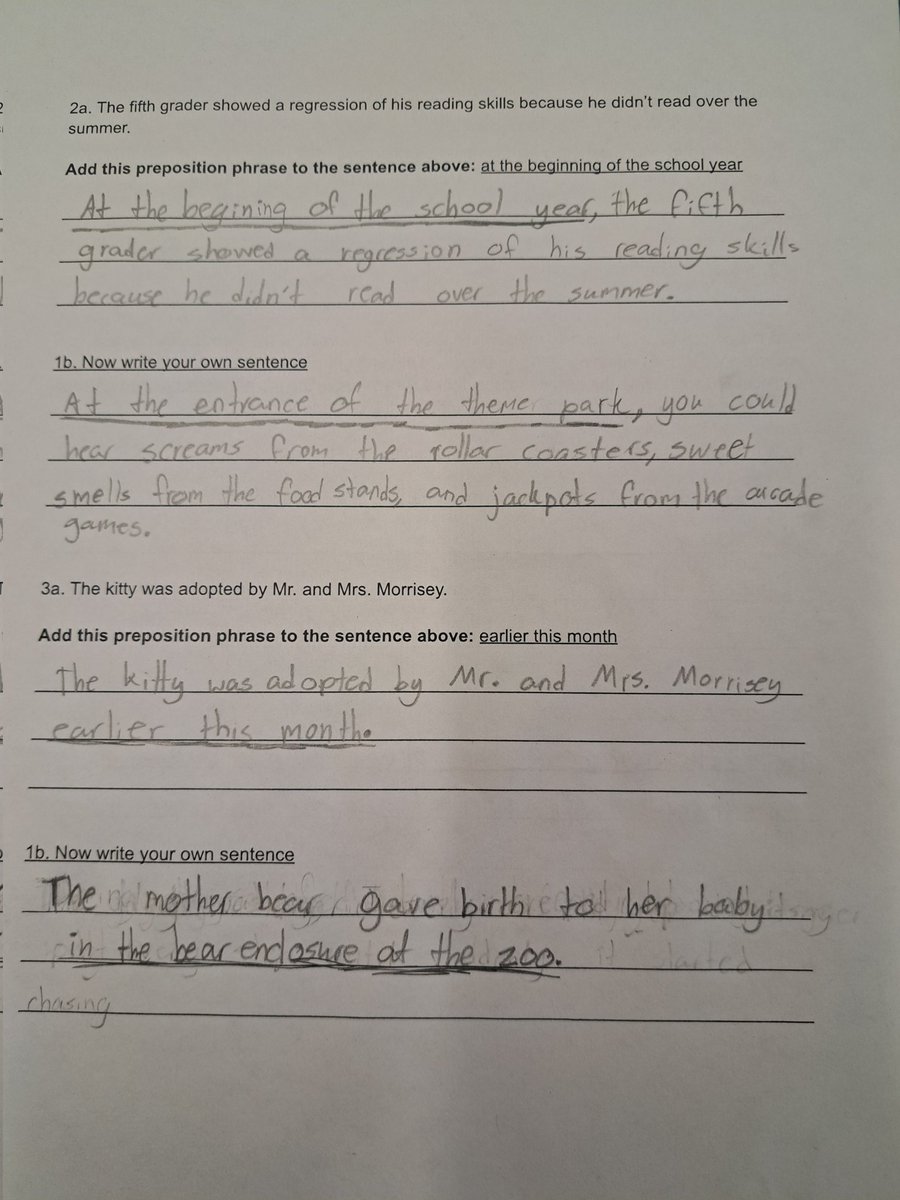 2a. The fifth grader showed a regression of his reading skills because he didn't read over the
summer.
Add this preposition phrase to the sentence above: at the beginning of the school year
At the begining of the school year, the fifth
grader showed a regression of his reading skills
because he didn't read over the summer.
1b. Now write your own sentence
At the entrance of the theme park, you could
hear screams from the rollar coasters, sweet
smells from the food stands, and jackpots from the arcade
games.
3a. The kitty was adopted by Mr. and Mrs. Morrisey.
Add this preposition phrase to the sentence above: earlier this month
The kitty was adopted by Mr. and Mrs. Morrisey
earlier this month.
1b. Now write your own sentence
The mother bear gave birth to her baby
in the bear enclosure at the zoo. it started
chasing